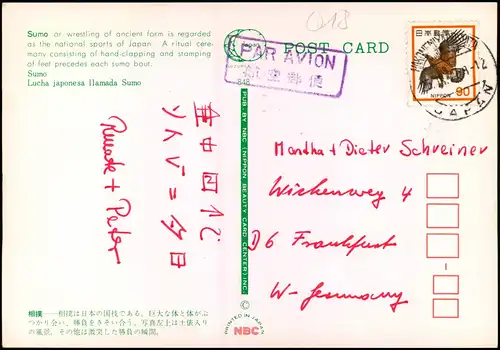 Sumo or wrestling of ancient form is regarded
as the national sports of Japan. A ritual cere-
mony consisting of hand-clapping and stamping
of feet precedes each sumo bout.
Sumo
Lucha japonesa llamada Sumo
POST CARD
PAR AVION
航空郵便
848
日本郵便
NIPPON 90
JAPAN
PUB. BY NBC (NIPPON BEAUTY CARD CENTER) INC.
Renate + Peter
Martha + Dieter Schreiner
Wickenweg 4
D6 Frankfurt
W-Germany
相撲――相撲は日本の国技である。巨大な体と体がぶ
つかり合い、勝負をきそい合う。写真左上は土俵入り
の風景、その他は激突した勝負の瞬間。
PRINTED IN JAPAN
NBC